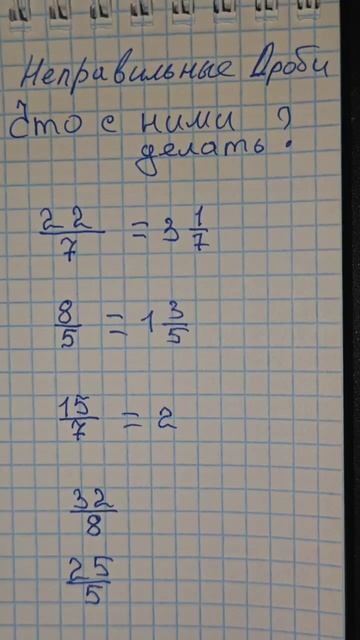 Неправильные Дроби
Что с ними
делать?
22/7 = 3 1/7
8/5 = 1 3/5
15/7 = 2
32/8
25/5